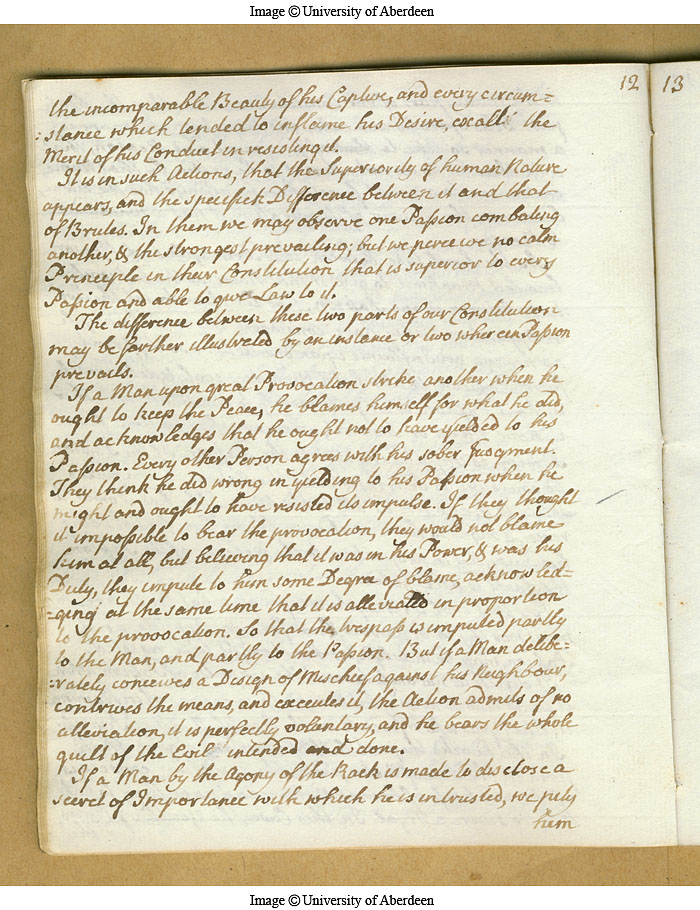 Image © University of Aberdeen
12 13
the incomparable Beauty of his Captive, and every circum=
=stance which tended to inflame his Desire, exalt the
Merit of his Conduct in resisting it.
It is in such Actions, that the Superiority of human Nature
appears, and the specifick Difference between it and that
of Brutes. In them we may observe one Passion combating
another, & the strongest prevailing; but we perceive no calm
Principle in their Constitution that is superior to every
Passion and able to give Law to it.
The difference between these two parts of our Constitution
may be farther illustrated by an instance or two wherein Passion
prevails.
If a Man upon great Provocation strike another when he
ought to keep the Peace, he blames himself for what he did,
and acknowledges that he ought not to have yielded to his
Passion. Every other Person agrees with his sober Judgment.
They think he did wrong in yielding to his Passion when he
might and ought to have resisted its impulse. If they thought
it impossible to bear the provocation, they would not blame
him at all, but believing that it was in his Power, & was his
Duty, they impute to him some Degree of blame, acknowled=
=ging at the same time that it is alleviated in proportion
to the provocation. So that the trespass is imputed partly
to the Man, and partly to the Passion. But if a Man delibe=
=rately conceives a Design of Mischief against his Neighbour,
contrives the means, and executes it, the Action admits of no
alleviation, it is perfectly voluntary, and he bears the whole
guilt of the Evil intended and done.
If a Man by the Agony of the Rack is made to disclose a
secret of Importance with which he is intrusted, we pity
him
Image © University of Aberdeen